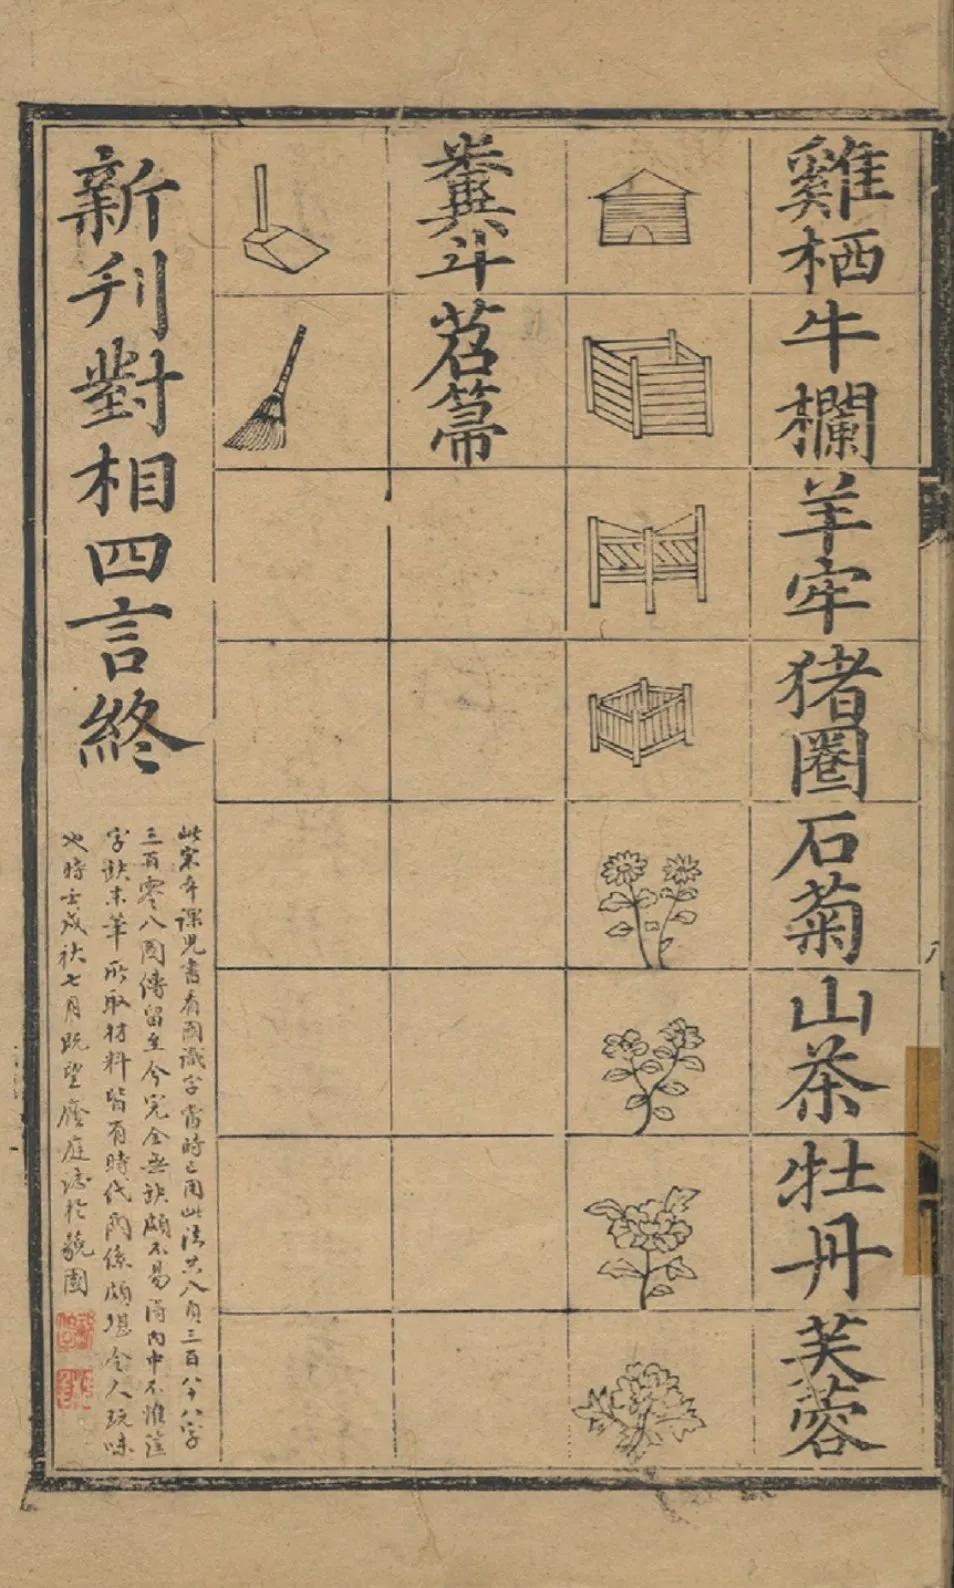 雞栖牛欄羊牢猪圈石菊山茶牡丹芙蓉
糞斗苕箒
新刋對相四言終
此宋本課兒書看圖識字當時已用此法共八頁三百八十八字
三百零八圖傳留至今完全無缺頗不易得內中不惟筐
字缺末筆所取材料皆有時代關係頗堪令人玩味
也時壬戌秋七月既望 庭誌於 園